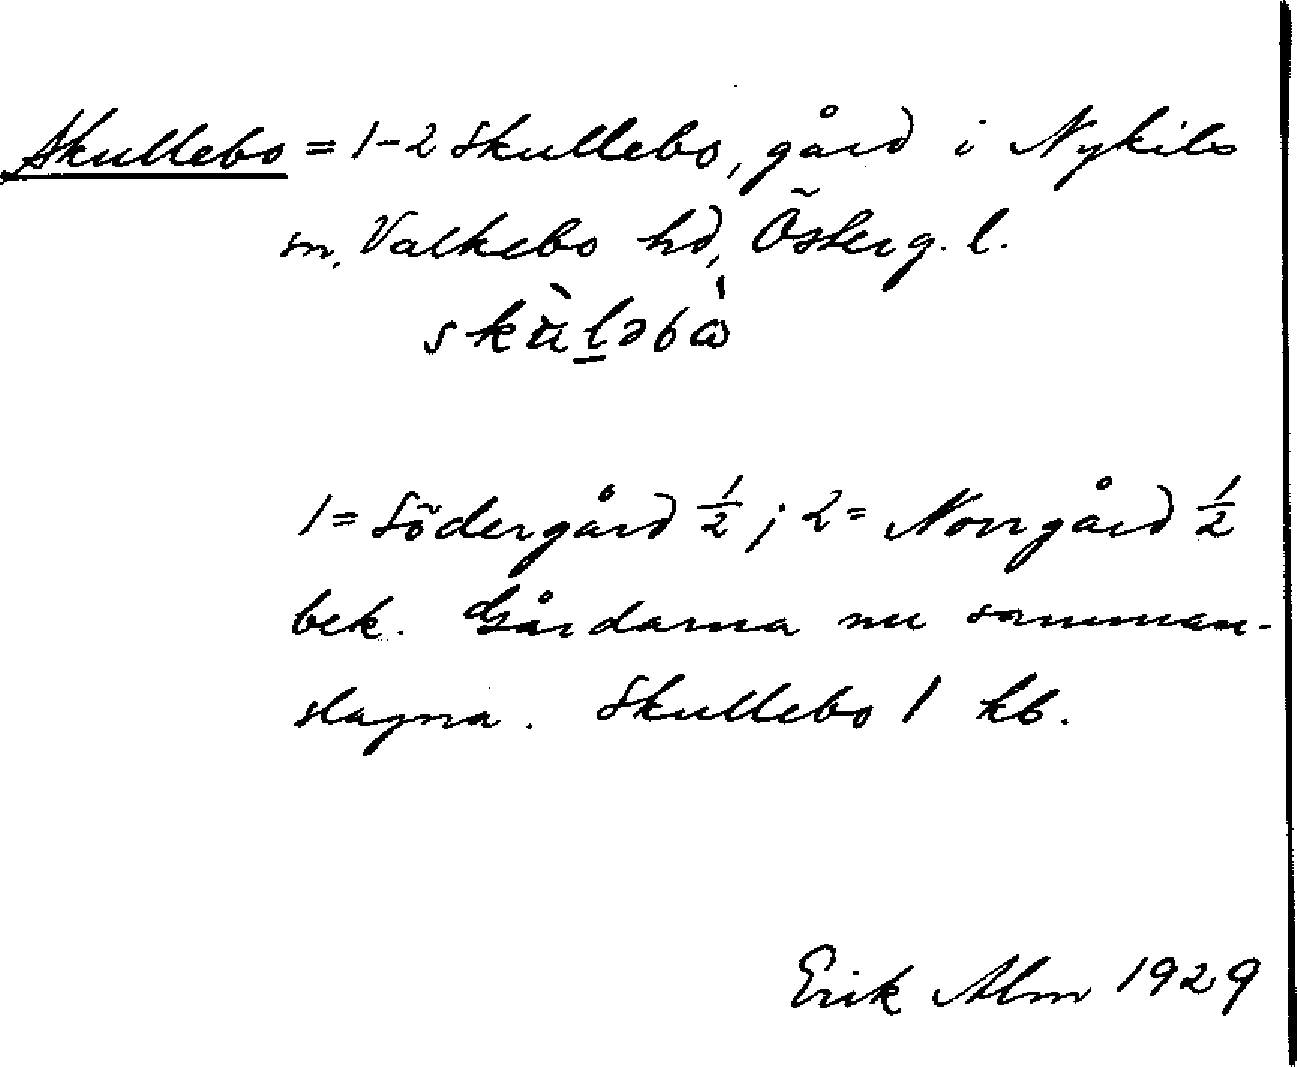 Skullebo = 1-2 Skullebo, gård i Nykils
sn, Valkebo hd, Österg. l.
skùləbò
1 = Södergård ½ ; 2 = Norrgård ½
bek. Gårdarna nu samman-
slagna. Skullebo 1 kb.
Erik Alm 1929